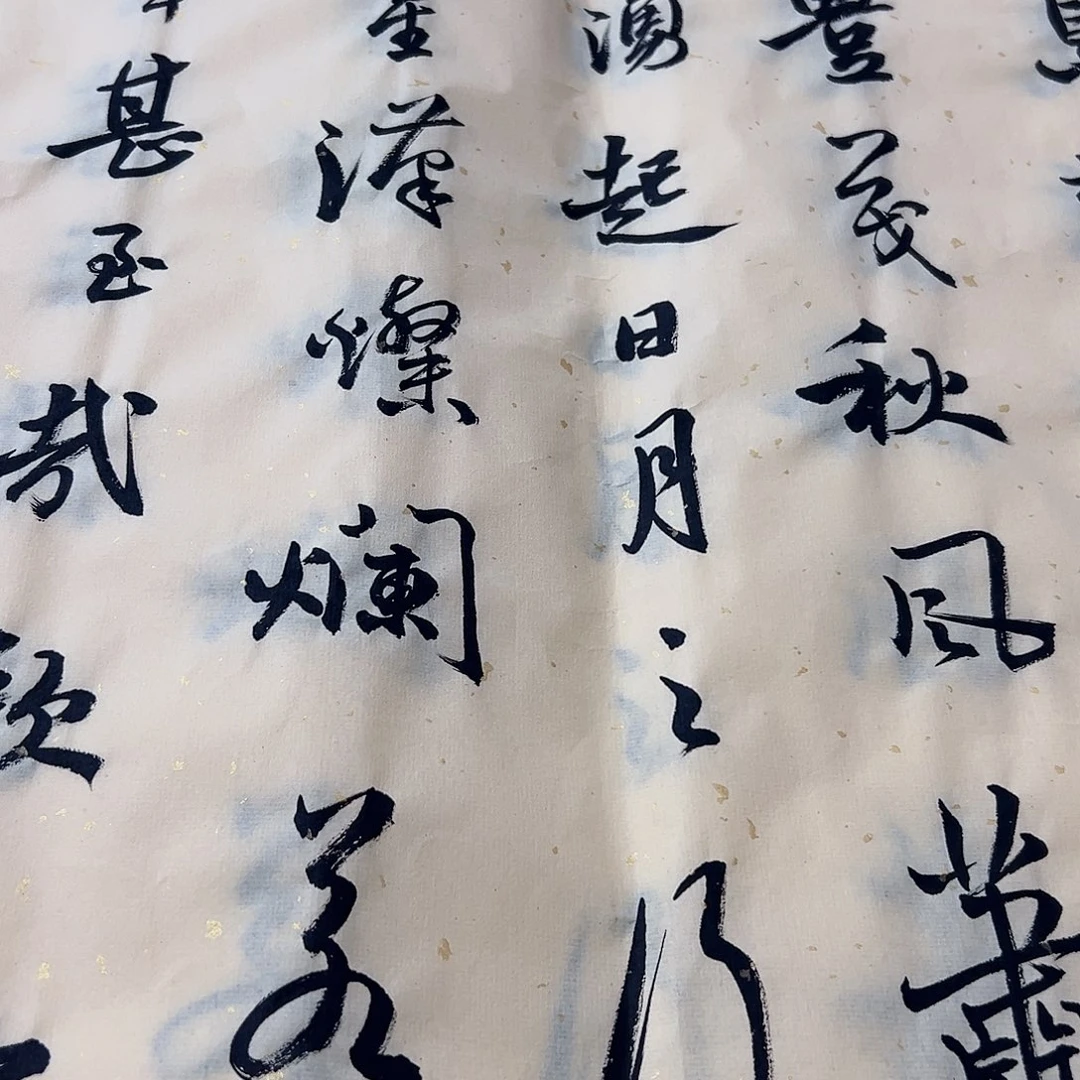 豐茂秋風蕭
湧起日月之行
星漢燦爛若
甚至哉歌